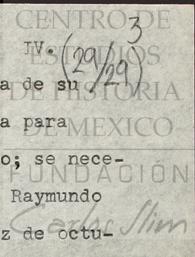 CENTRO DE
3
IV. (29/29)
ESTUDIOS
a de su
DE HISTORIA
a para
DE MEXICO
o; se nece-
FUNDACIÓN
Raymundo
Carlos Slim
z de octu-